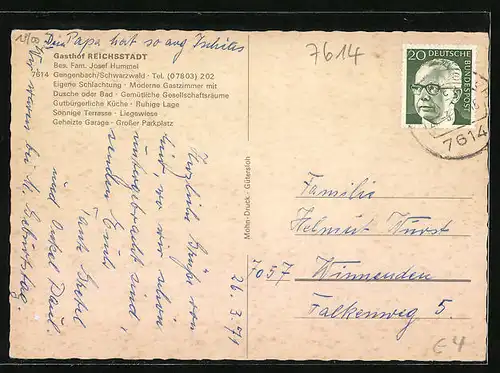 Dein Papa hat so arg Ischias
Gasthof REICHSSTADT
Bes. Fam. Josef Hummel
7614 Gengenbach/Schwarzwald · Tel. (07803) 202
Eigene Schlachtung · Moderne Gastzimmer mit
Dusche oder Bad · Gemütliche Gesellschaftsräume
Gutbürgerliche Küche · Ruhige Lage
Sonnige Terrasse · Liegewiese
Geheizte Garage · Großer Parkplatz
Herzliche Grüße von
hier wo wir schön
untergebracht sind,
senden Euch
Tante Gretel
und Onkel Paul.
26.3.71
Mohn-Druck · Gütersloh
7614
20 DEUTSCHE BUNDESPOST
7614
Familie
Helmut Wurst
7057 Winnenden
Falkenweg 5.
€4